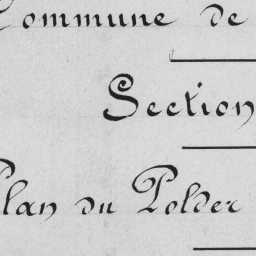 Commune de
Section
Plan du Polder